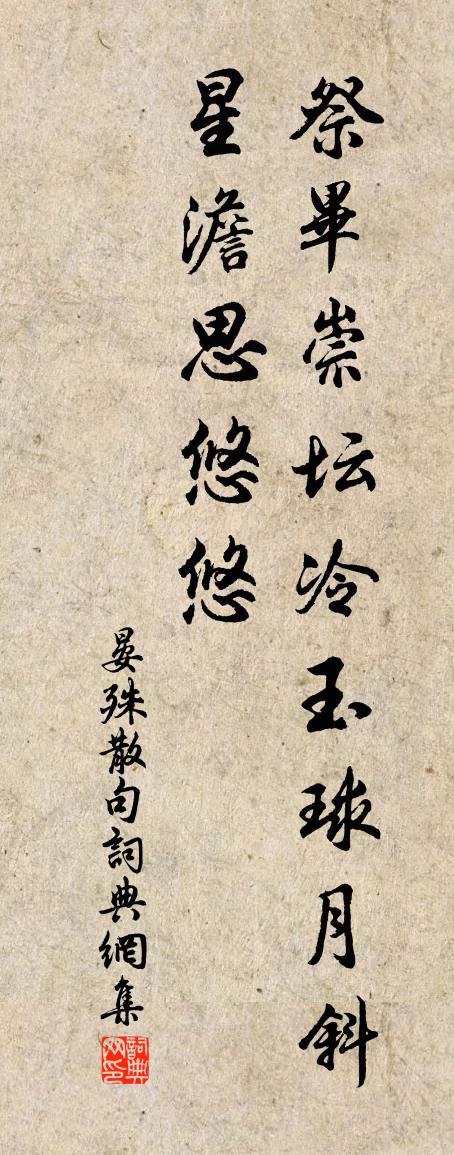 祭畢崇坛冷玉球月斜
星澹思悠悠
晏殊散句詞典網集
詞典网印